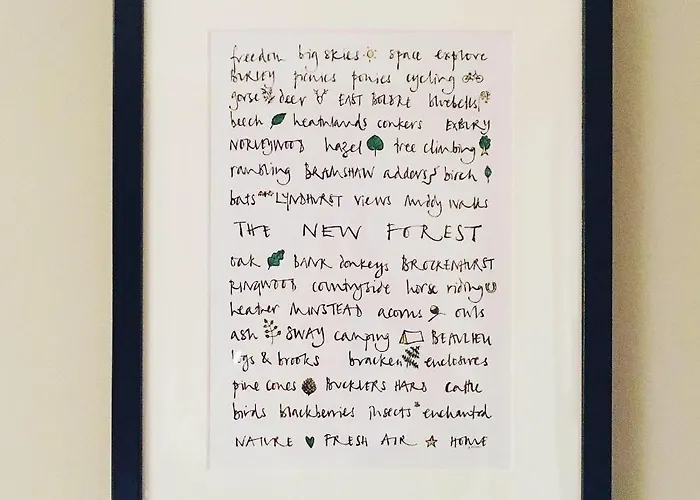 freedom big skies space explore
BURLEY picnics ponies cycling
gorse deer EAST BOLDRE bluebells
beech heathlands conkers EXBURY
NORLEYWOOD hazel tree climbing
rambling BRAMSHAW adders birch
bats LYNDHURST views muddy walks
THE NEW FOREST
oak BANK donkeys BROCKENHURST
RINGWOOD countryside horse riding
heather MINSTEAD acorns owls
ash SWAY camping BEAULIEU
bogs & brooks bracken enclosures
pine cones BUCKLERS HARD cattle
birds blackberries insects enchanted
NATURE FRESH AIR HOME